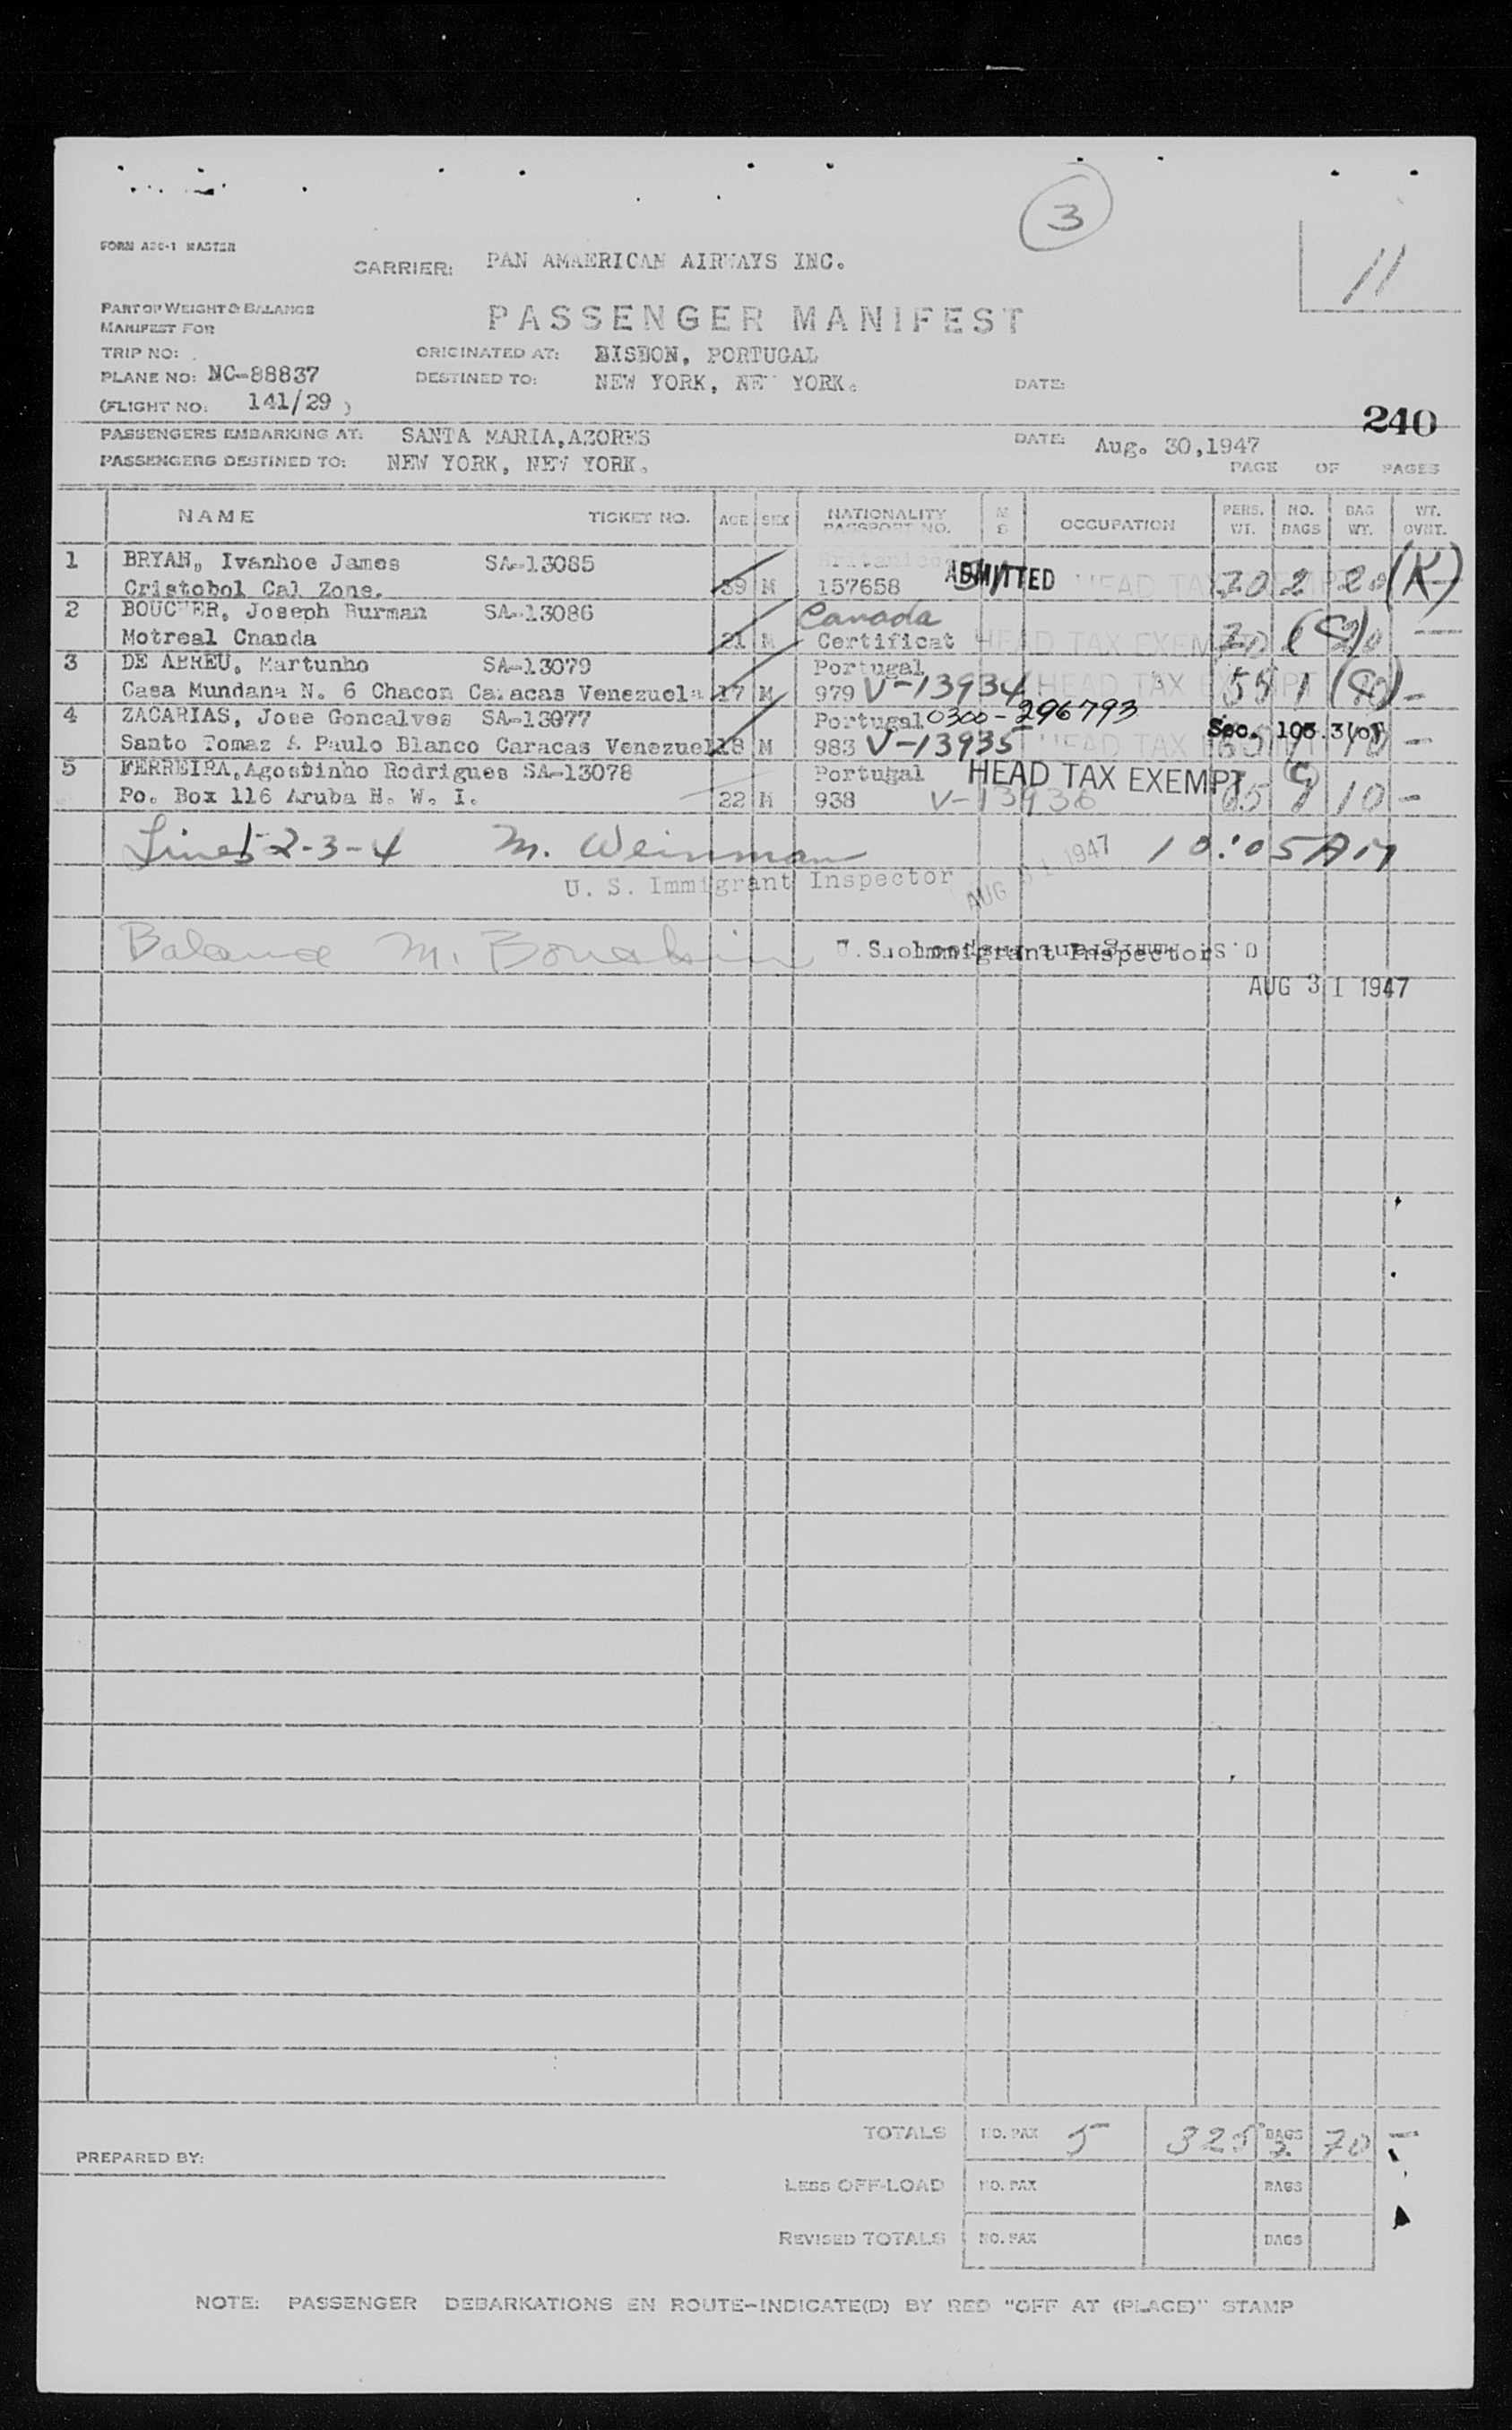 3
FORM ABC-1 MASTER
CARRIER: PAN AMAERICAN AIRWAYS INC.
11
PART OF WEIGHT & BALANCE
MANIFEST FOR
PASSENGER MANIFEST
TRIP NO:
ORIGINATED AT: LISBON, PORTUGAL
PLANE NO: NC-88837
DESTINED TO: NEW YORK, NEW YORK.
DATE:
(FLIGHT NO: 141/29 )
240
PASSENGERS EMBARKING AT: SANTA MARIA, AZORES
DATE: Aug. 30,1947
PASSENGERS DESTINED TO: NEW YORK, NEW YORK.
PAGE OF PAGES
NAME TICKET NO. AGE SEX NATIONALITY PASSPORT NO. OCCUPATION PERS. WT. NO. BAGS BAG WT. WT. OVHT.
1 BRYAN, Ivanhoe James SA-13085
Cristobol Cal Zone. 39 M 157658 ADMITTED HEAD TAX EXEMPT 70 2 20 (K)
2 BOUCHER, Joseph Burman SA-13086 Canada
Motreal Cnanda 21 M Certificat HEAD TAX EXEMPT 70
3 DE ABREU, Martunho SA-13079 Portugal
Casa Mundana N. 6 Chacon Caracas Venezuela 17 M 979 V-13934 HEAD TAX EXEMPT 55 1
4 ZACARIAS, Jose Goncalves SA-13077 Portugal 0300-296793
Santo Tomaz A Paulo Blanco Caracas Venezuel 18 M 983 V-13935 HEAD TAX Sec. 105.3(c) 10 -
5 FERREIRA, Agostinho Rodrigues SA-13078 Portugal HEAD TAX EXEMPT
Po. Box 116 Aruba H. W. I. 22 M 938 V-13936 65 10 -
Lines 1-2-3-4 M. Weinman AUG 31 1947 10:05 AM
U. S. Immigrant Inspector
Balance M.
U. S. Immigrant Inspector
AUG 31 1947
TOTALS NO. PAX 5 325 BAGS 70 -
PREPARED BY:
LESS OFF-LOAD NO. PAX BAGS
REVISED TOTALS NO. PAX BAGS
NOTE: PASSENGER DEBARKATIONS EN ROUTE-INDICATE(D) BY RED "OFF AT (PLACE)" STAMP